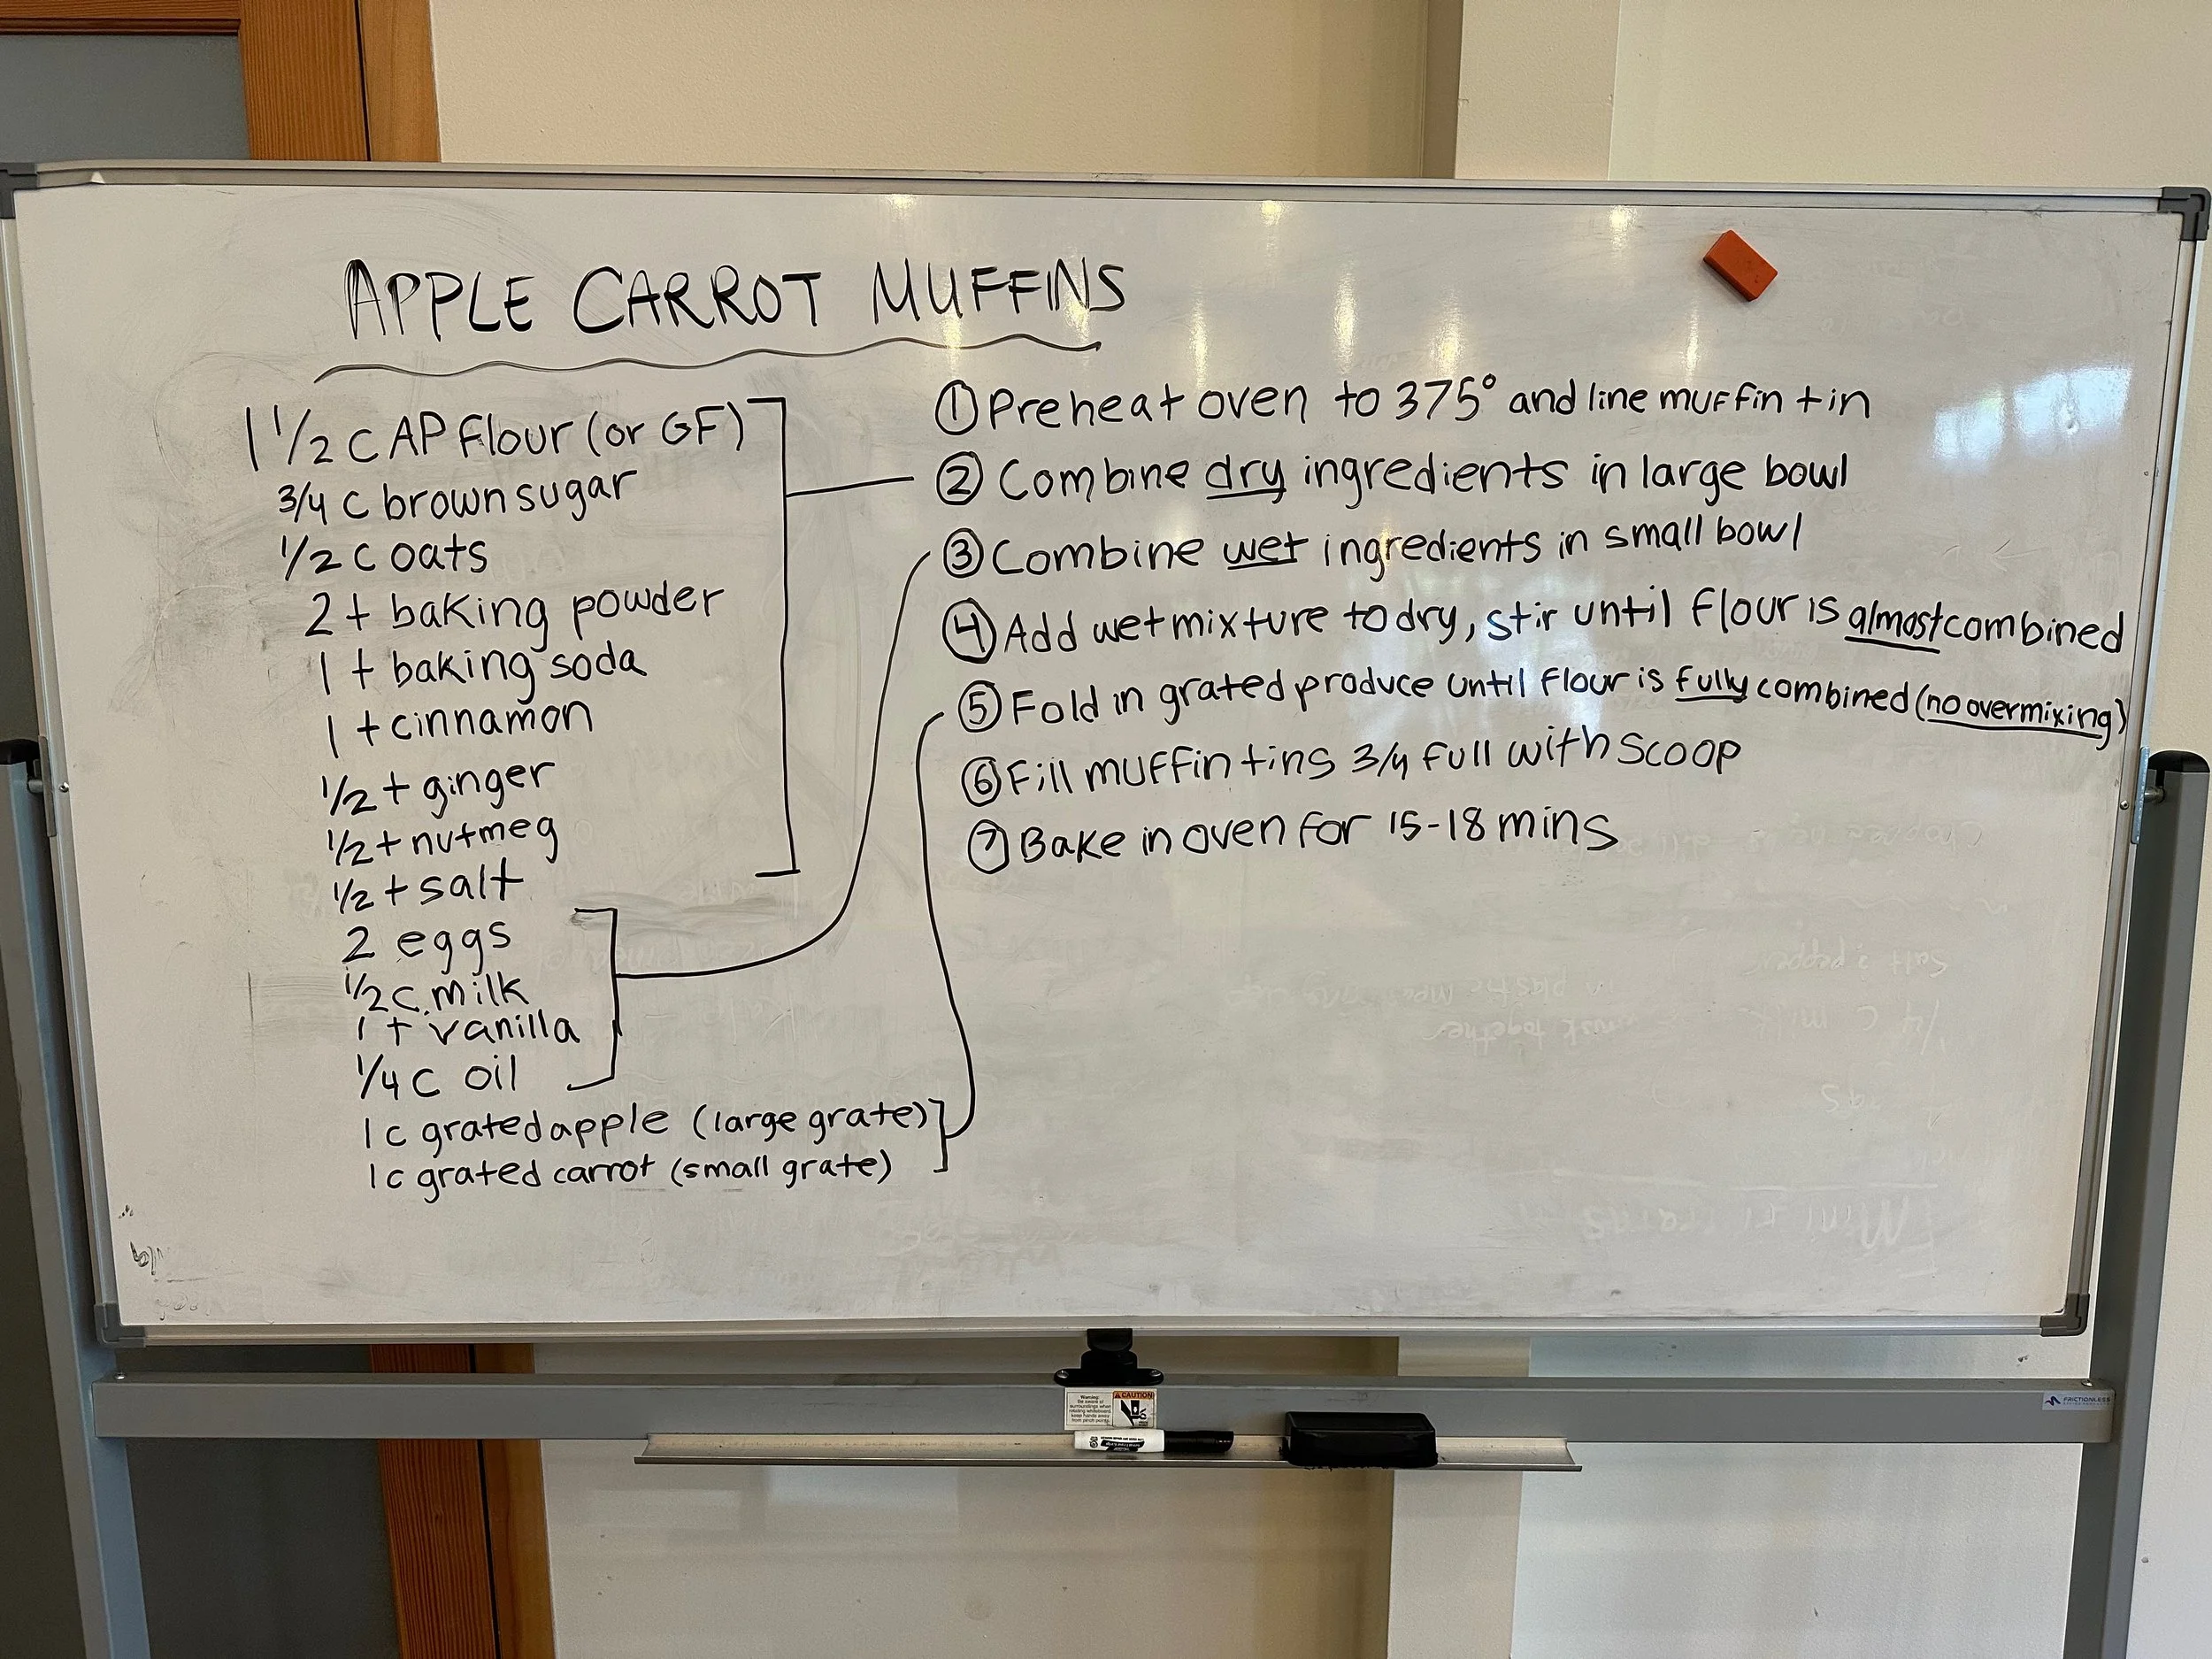 APPLE CARROT MUFFINS
1 1/2 c AP flour (or GF)
3/4 c brown sugar
1/2 c oats
2 t baking powder
1 t baking soda
1 t cinnamon
1/2 t ginger
1/2 t nutmeg
1/2 t salt
2 eggs
1/2 c milk
1 t vanilla
1/4 c oil
1 c grated apple (large grate)
1 c grated carrot (small grate)
① Preheat oven to 375° and line muffin tin
② Combine dry ingredients in large bowl
③ Combine wet ingredients in small bowl
④ Add wet mixture to dry, stir until flour is almost combined
⑤ Fold in grated produce until flour is fully combined (no overmixing)
⑥ Fill muffin tins 3/4 full with scoop
⑦ Bake in oven for 15-18 mins
salt & pepper
1/4 c milk
together
CAUTION
Warning:
Be aware of
surroundings when
rotating whiteboard
keep hands away
from pinch points.
FRICTIONLESS